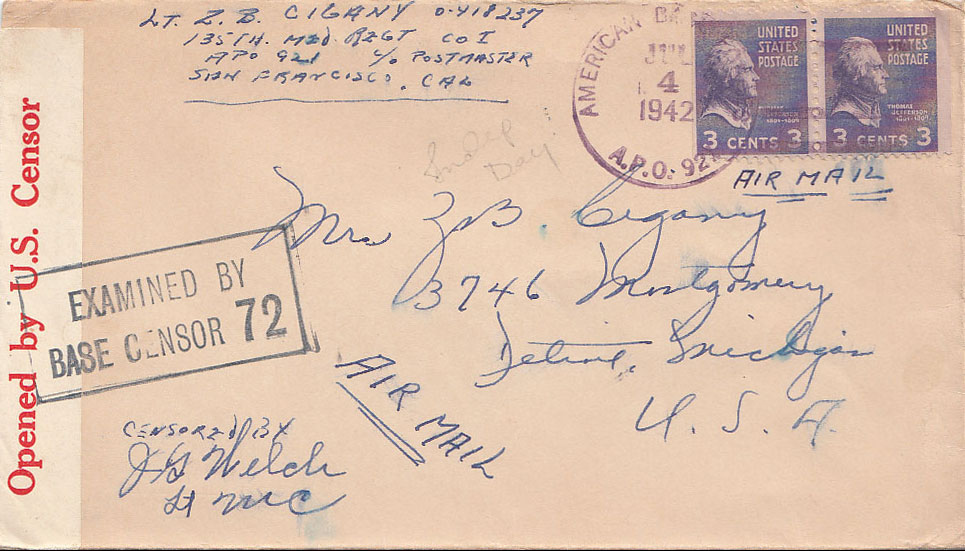 LT. Z. B. CIGANY O-418237
135TH. MED. REGT CO I
APO 921 C/O POSTMASTER
SAN FRANCISCO, CAL
AMERICAN BASE
JUL
4
1942
A.P.O. 921
UNITED
STATES
POSTAGE
THOMAS
JEFFERSON
1801-1809
3 CENTS 3
UNITED
STATES
POSTAGE
THOMAS
JEFFERSON
1801-1809
3 CENTS 3
AIR MAIL
Indep
Day!
Mrs Z. B. Cigany
3746 Montgomery
Detroit, Michigan
U. S. A.
Opened by U.S. Censor
EXAMINED BY
BASE CENSOR 72
AIR MAIL
CENSORED BY
Welch
Lt MC